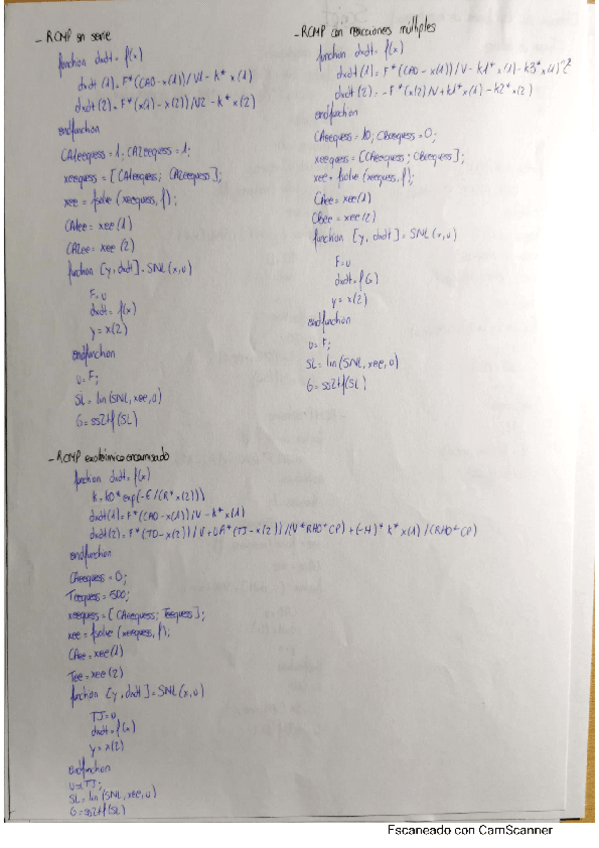 - RCMP en serie
function dxdt = f(x)
dxdt(1) = F*(CA0 - x(1))/V1 - k*x(1)
dxdt(2) = F*(x(1) - x(2))/V2 - k*x(2)
endfunction
CA1eeguess = 1; CA2eeguess = 1;
xeeguess = [CA1eeguess; CA2eeguess];
xee = fsolve(xeeguess, f);
CA1ee = xee(1)
CA2ee = xee(2)
function [y, dxdt] = SNL(x,u)
F=u
dxdt = f(x)
y = x(2)
endfunction
u = F;
SL = lin(SNL, xee, u)
G = ss2tf(SL)
- RCMP con reacciones múltiples
function dxdt = f(x)
dxdt(1) = F*(CA0 - x(1))/V - k1*x(1) - k3*x(1)^2
dxdt(2) = -F*(x(2)/V + k1*x(1) - k2*x(2)
endfunction
CAeeguess = 10; CBeeguess = 0;
xeeguess = [CAeeguess; CBeeguess];
xee = fsolve(xeeguess, f);
CAee = xee(1)
CBee = xee(2)
function [y, dxdt] = SNL(x,u)
F=u
dxdt = f(x)
y = x(2)
endfunction
u = F;
SL = lin(SNL, xee, u)
G = ss2tf(SL)
- RCMP exotérmico encamisado
function dxdt = f(x)
k = k0*exp(-E/(R*x(2)))
dxdt(1) = F*(CA0 - x(1))/V - k*x(1)
dxdt(2) = F*(T0 - x(2))/V + UA*(TJ - x(2))/(V*RHO*CP) + (-H)*k*x(1)/(RHO*CP)
endfunction
CAeeguess = 0;
Teeguess = 500;
xeeguess = [CAeeguess; Teeguess];
xee = fsolve(xeeguess, f);
CAee = xee(1)
Tee = xee(2)
function [y, dxdt] = SNL(x,u)
TJ = u
dxdt = f(x)
y = x(2)
endfunction
u = TJ;
SL = lin(SNL, xee, u)
G = ss2tf(SL)
Escaneado con CamScanner